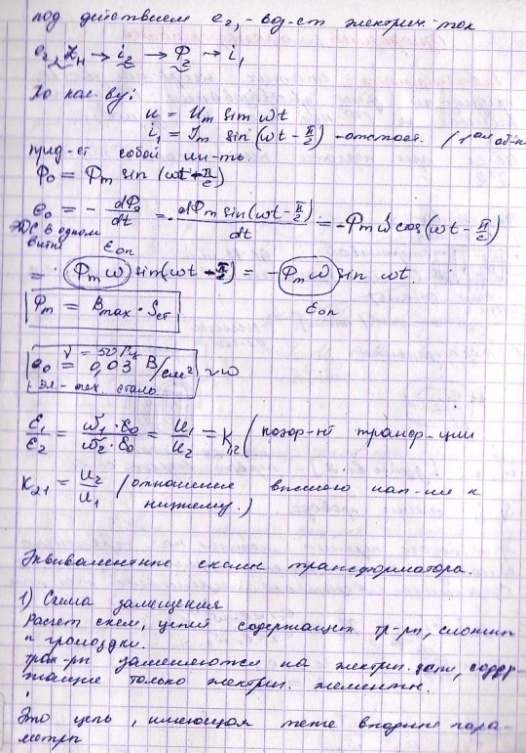 под действием e₂, - вд-ст электрич. ток
e₂ Zн → i₂ → Φ₂ → i₁
Хо кол-ву:
u = Um sin ωt
i₁ = Jm sin (ωt - π/2) - отстает. (1
пред-ет собой ин-ть.
φ₀ = Φm sin (ωt - π/2)
e₀ = - dΦ₀/dt = - dΦm sin(ωt - π/2)/dt = -Φm ω cos(ωt - π/2)
ЭДС в одном витке
ε₀п
= Φm ω sin(ωt - π/2) = -Φm ω sin ωt.
ε₀п
Φm = Bmax · Sст
ν = 50 Гц
e₀ = 0,03 В/см²
эл-тех. сталь.
ε₁/ε₂ = ω₁·ε₀/ω₂·ε₀ = u₁/u₂ = K₁₂ ( коэф-нт трансф-ции
K₂₁ = u₂/u₁ (отношение высшего нап-ия к
низшему.)
Эквивалентные схемы трансформатора.
1) Схема замещения
Расчет схем, цепей содержащих тр-ры, сложны
и громоздки.
тран-ры заменяются на электрич. цепи, содер-
жащие только электрич. элементы.
Это цепь, имеющая те же входные пара-
метры